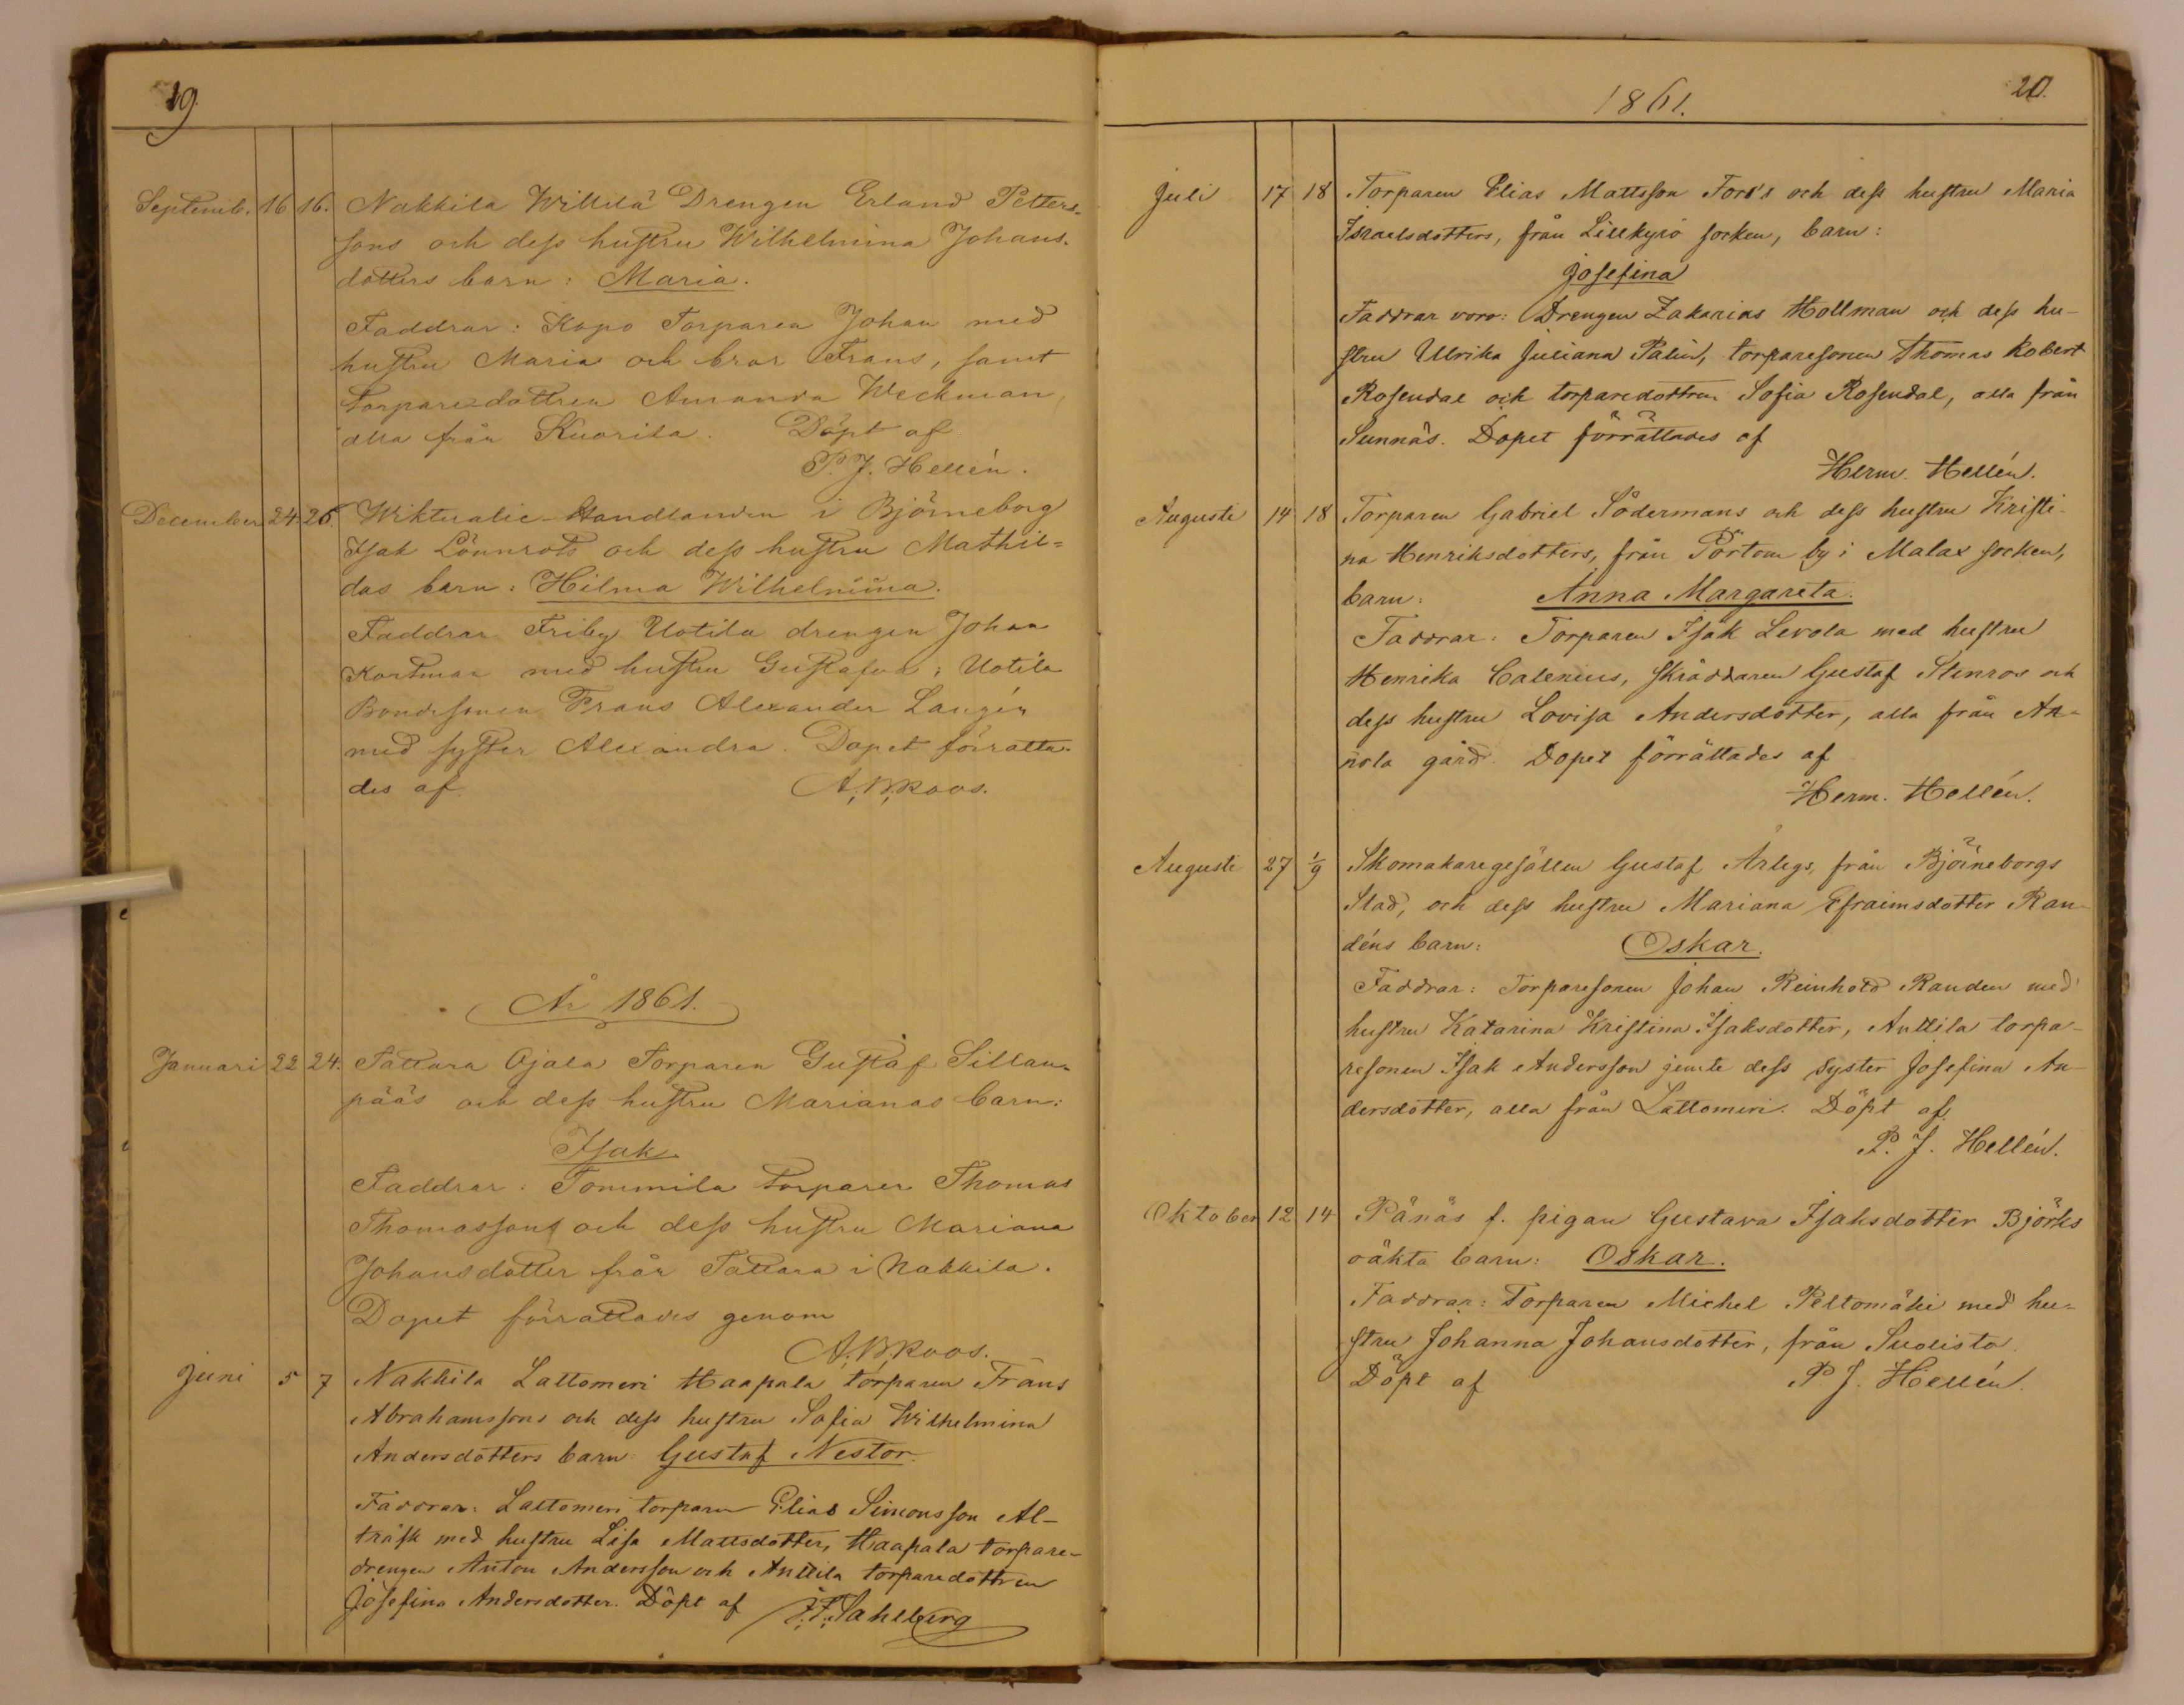 19.
Septemb. 16 16. Nakkila Willilä Drengen Erland Petters-
sons och dess hustru Wilhelmina Johans-
dotters barn: Maria.
Faddrar: Kopo Torparen Johan med
hustru Maria och bror Frans, samt
torparedottren Amanda Weckman,
alla från Kuorila. Döpt af
P. J. Hellén.
December 24. 26. Wiktualie-Handlanden i Björneborg
Isak Lönnrots och dess hustru Mathil=
das barn: Hilma Wilhelmina.
Faddrar Friby Uotila drengen Johan
Kortman med hustru Gustafva; Uotila
Bondesonen Frans Alexander Langén
med syster Alexandra. Dopet förrätta-
des af. A. W. Roos.
År 1861.
Januari 22 24. Tattara Ojala Torparen Gustaf Sillan-
pääs och dess hustru Marianas barn:
Isak.
Faddrar: Tommila torparen Thomas
Thomassons och dess hustru Mariana
Johansdotter från Tattara i Nakkila.
Dopet förrättades genom
A. W. Roos.
Juni 5 7 Nakkila Lattomeri Haapala torparen Frans
Abrahamssons och dess hustru Sofia Wilhelmina
Andersdotters barn: Gustaf Nestor.
Faddrar: Lattomeri torparen Elias Simonsson Al-
träsk med hustru Lisa Mattsdotter, Haapala torpare-
drengen Anton Andersson och Anttila torparedottren
Josefina Andersdotter. Döpt af F. F. Sahlberg
1861. 20.
Juli 17 18 Torparen Elias Mattsson Fors's och dess hustru Maria
Israelsdotters, från Lillkyro socken, barn:
Josefina
Faddrar voro: Drengen Zakarias Hollman och dess hu-
stru Ulrika Juliana Palin, torparesonen Thomas Robert
Rosendal och torparedottren Sofia Rosendal, alla från
Sunnäs. Dopet förrättades af
Herm. Hellén.
Augusti 14 18 Torparen Gabriel Södermans och dess hustru Kristi-
na Henriksdotters, från Pörtom by i Malax socken,
barn: Anna Margareta.
Faddrar: Torparen Isak Levola med hustru
Henrika Calenius, skräddaren Gustaf Stenros och
dess hustru Lovisa Andersdotter, alla från An-
nola gård. Dopet förrättades af
Herm. Hellén.
Augusti 27 1/9 Skomakaregesällen Gustaf Ärlegs, från Björneborgs
Stad, och dess hustru Mariana Efraimsdotter Ran-
déns barn: Oskar.
Faddrar: Torparesonen Johan Reinhold Randen med
hustru Katarina Kristina Isaksdotter, Anttila torpa-
resonen Isak Andersson jemte dess syster Josefina An-
dersdotter, alla från Lattomeri. Döpt af
P. J. Hellén.
Oktober 12 14 Pänäs f. pigan Gustava Isaksdotter Björks
oäkta barn: Oskar.
Faddrar: Torparen Michel Peltomäki med hu-
stru Johanna Johansdotter, från Suolisto.
Döpt af P J. Hellén.